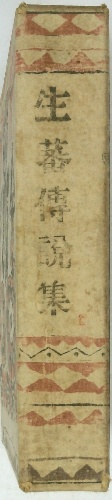 生蕃傳説集